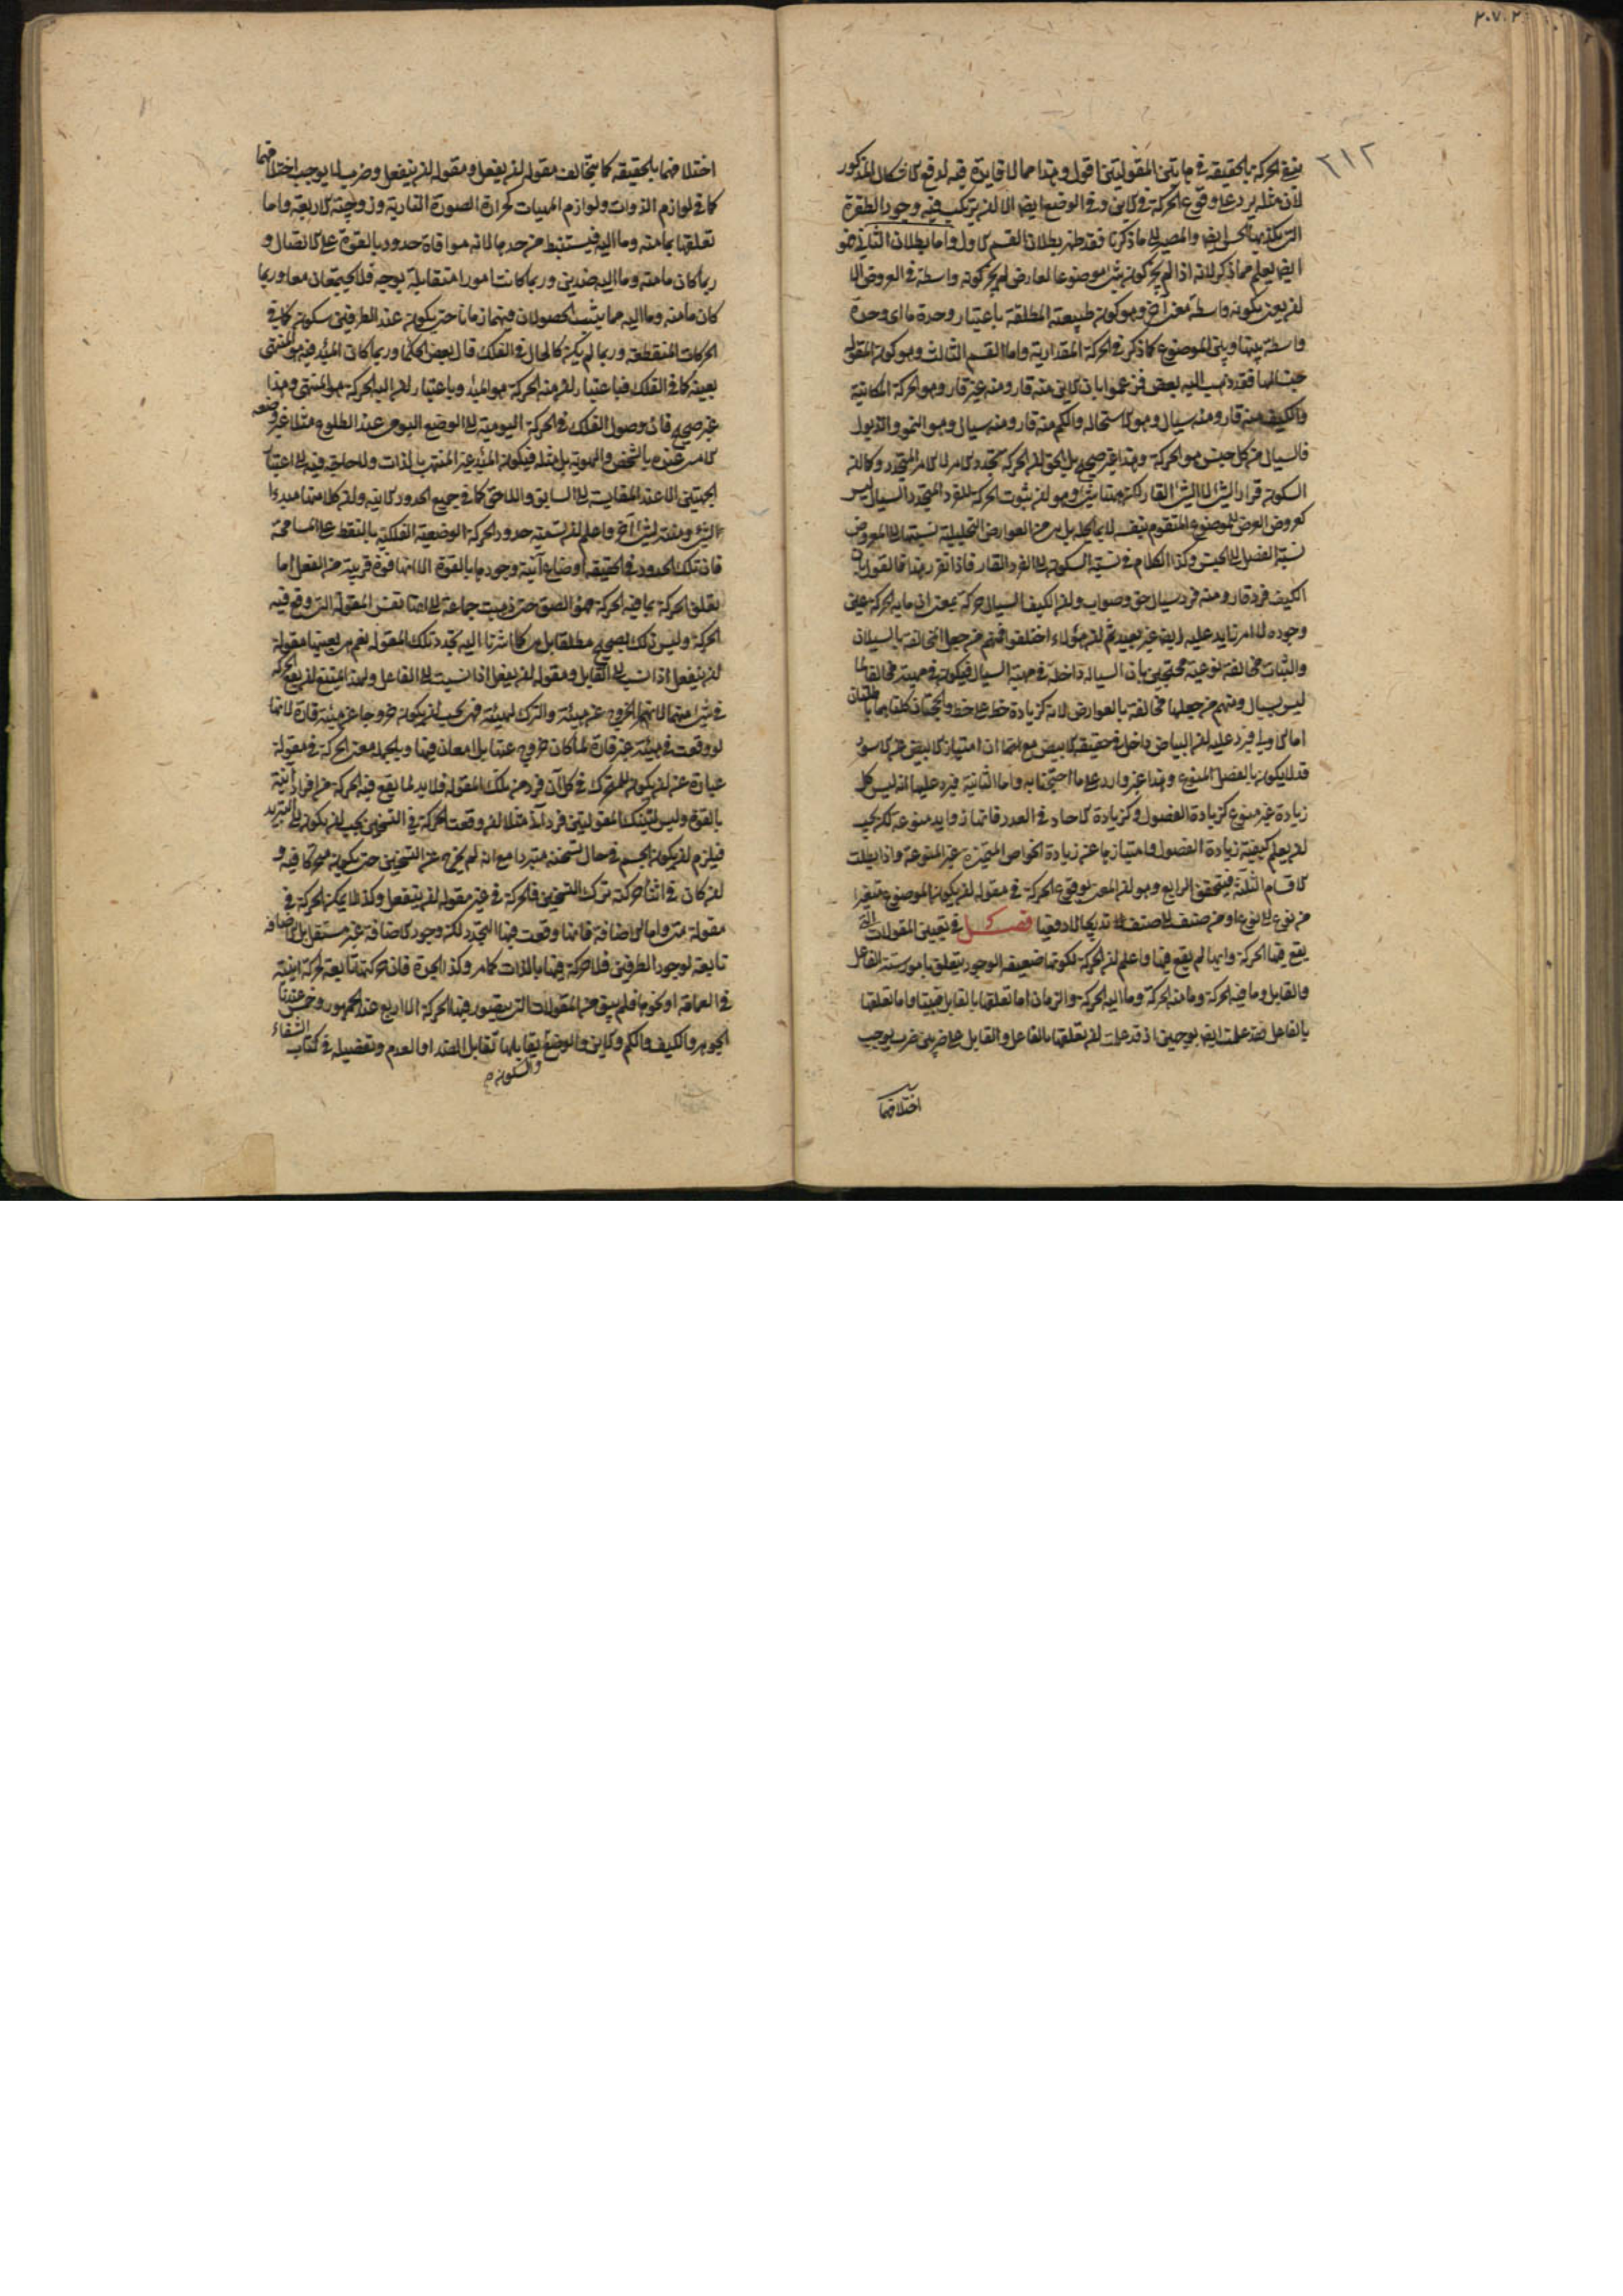 ٢٠٧.٢
٣١٢
بنفي الحركة بالحقيقة في هاتين المقولتين اقول وهذا مما لا فايدة فيه لدفع الاشكال المذكور
لان مثله يرد على وقوع الحركة في الاين وفي الوضع ايضا الا ان يرتكب فيه وجود الطفرة
التي يكذبها الحس ايضا والمصير الى ما ذكرنا فقد ظهر بطلان القسم الاول واما بطلان الثاني فهو
ايضا يعلم مما ذكر لانه اذا لم يجز كونه شئ موضوعا لعارض لم يجز كونه واسطة في العروض الا
ان يعنى بكونه واسطة معنى اخر وهو كونه طبيعته المطلقة باعتبار وحدة ما اى وحدة
واسطة بينها وبين الموضوع كما ذكر في الحركة المقدارية واما القسم الثالث وهو كون المقولة
جنسا لها فقد ذهب اليه بعض فزعموا بان الاين منه قار ومنه غير قار وهو الحركة المكانية
والكيف منه قار ومنه سيال وهو الاستحالة والكم منه قار ومنه سيال وهو النمو والذبول
فالسيال من كل جنس هو الحركة وهذا غير صحيح بل الحق ان الحركة تجدد الامر لا الامر المتجدد وكما ان
السكون قرار الشئ لا الشئ القار لكن ههنا شئ وهو ان ثبوت الحركة للفرد المتجدد السيال ليس
كعروض العرض للموضوع المتقوم بنفسه لا بما يحله بل هى من العوارض التحليلية نسبتها الى المعروض
نسبة الفصل الى الجنس وكذا الكلام في نسبة السكون الى الفرد القار فاذا تقرر هذا فالقول بان
الكيف فرد قار ومنه فرد سيال حق وصواب وان الكيف السيال حركة بمعنى ان ما به الحركة عين
وجوده لا امر زايد عليه ايضا غير بعيد ثم ان هؤلاء اختلفوا فمنهم من جعل المخالفة بالسيلان
والثبات مخالفة نوعية محتجين بان السيالة داخلة في مهية السيال فيكون في مهيته مخالفا لما
ليس بسيال ومنهم من جعلها مخالفة بالعوارض لانه كزيادة خط على خط والحجتان كلتاهما باطلتان
اما الاولى فيرد عليه ان البياض داخل في حقيقة الابيض مع انها ان امتياز الابيض عن الاسود
قد لا يكون بالفصل المنوع وهذا غير وارد على ما احتججنا به واما الثانية فيرد عليها انه ليس كل
زيادة غير منوع كزيادة الفصول وكزيادة الاحاد في العدد فانها زوايد منوعة لكن يجب
ان يعلم كيفية زيادة الفصول وامتيازها عن زيادة الخواص المتميزة غير المنوعة واذا بطلت
الاقسام الثلثة فيتحقق الرابع وهو ان المعنى بوقوع الحركة في مقولة ان يكون الموضوع متغيرا
من نوع الى نوع او من صنف الى صنف تدريجا لا دفعيا فصـــــل في تعيين المقولات التي
يقع فيها الحركة وانها لم يقع فيها واعلم ان الحركة لكونها ضعيفة الوجود يتعلق بامور ستة الفاعل
والقابل وما فيه الحركة وما منه الحركة وما اليه الحركة والزمان اما تعلقها بالقابل فبينا واما تعلقها
بالفاعل فقد علمت ايضا بوجهين اذ قد علمت ان تعلقها بالفاعل والقابل على ضربين ضرب يوجب
اختلافهما
اختلافهما بالحقيقة كما يتخالف مقولة ان يفعل ومقولة ان ينفعل وضرب لا يوجب اختلافهما
كما في لوازم الذوات ولوازم المهيات كحرارة الصورة النارية وزوجية الاربعة واما
تعلقها بما منه وما اليه فيستنبط من حدها لانه موافاة حدود بالقوة على الاتصال و
ربما كان ما منه وما اليه ضدين وربما كانت امورا متقابلة بوجه فلا يجتمعان معا وربما
كان ما منه وما اليه مما يثبت الحصولان فيهما زمانا حتى يكون عند الطرفين سكون كما في
الحركات المنقطعة وربما لم يكن كالحال في الفلك قال بعض الحكماء وربما كان المبدء فيه هو المنتهى
بعينه كما في الفلك فباعتبار ان منه الحركة هو المبدء وباعتبار ان اليه الحركة هو المنتهى وهذا
غير صحيح فان وصول الفلك في الحركة اليومية الى الوضع اليومى عند الطلوع مثلا غير وضعه
الامس عنده بالشخص والهوية بل مثله فيكون المبدء غير المنتهى بالذات ولا حاجة فيه الى اعتبار
الجهتين الا عند المقايسة الى السابق واللاحق كما في جميع الحدود الاينية وان كلا منها مبدء
الشئ ومنه لشئ اخر واعلم ان تسمية حدود الحركة الوضعية الفلكية بالنقط على المسامحة
فان تلك الحدود في الحقيقة اوضاع آنية وجودها بالقوة الا انها قوة قريبة من الفعل اما
تعلق الحركة بما فيه الحركة فهو الصق حتى ذهبت جماعة الى انها نفس المقولة التى وقع فيه
الحركة وليس ذلك بصحيح مطلقا بل هى كما اشرنا اليه تجدد تلك المقولة نعم هى بعينها مقولة
ان ينفعل اذا نسب الى القابل ومقولة ان يفعل اذا نسبت الى الفاعل ولهذا يمتنع ان يقع الحركة
في شئ منهما لانهما الخروج عن هيئة والترك لهيئة فهى يجب ان يكون خروجا عن هيئة قارة لانها
لو وقعت في هيئة غير قارة لما كان خروج عنها بل امعان فيها وبالجملة معنى الحركة في مقولة
عبارة عن ان يكون للمتحرك في كل آن فرد من تلك المقولة فلا بد لما يقع فيه الحركة من افراد آنية
بالقوة وليس لتينك المقولتين فرد آنى مثلا لو وقعت الحركة في التسخين يجب ان يكون الى التبريد
فيلزم ان يكون الجسم في حال تسخنه متبردا مع انه لم يخرج عن التسخين حتى يكون متحركا فيه و
ان كان في اثناء حركته ترك التسخين فالحركة في غير مقولة ان ينفعل وكذا لا يمكن الحركة في
مقولة متى واما الاضافة فانها وقعت فيها التجدد لكن وجود الاضافة غير مستقل بل الاضافة
تابعة لوجود الطرفين فلا حركة فيها بالذات كما مر وكذا الجدة فان حركتها تابعة لحركة اينية
في العمامة او نحوها فلم يبق من المقولات التى يتصور فيها الحركة الا الاربع عند الجمهور وخمس عندنا
الجوهر والكيف والكم والاين والوضع والسكون يقابلها تقابل الضد او العدم وتفصيله في كتاب الشفاء